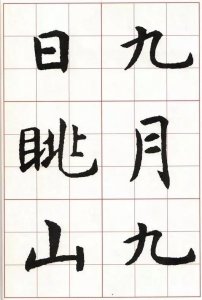 九月九
日眺山